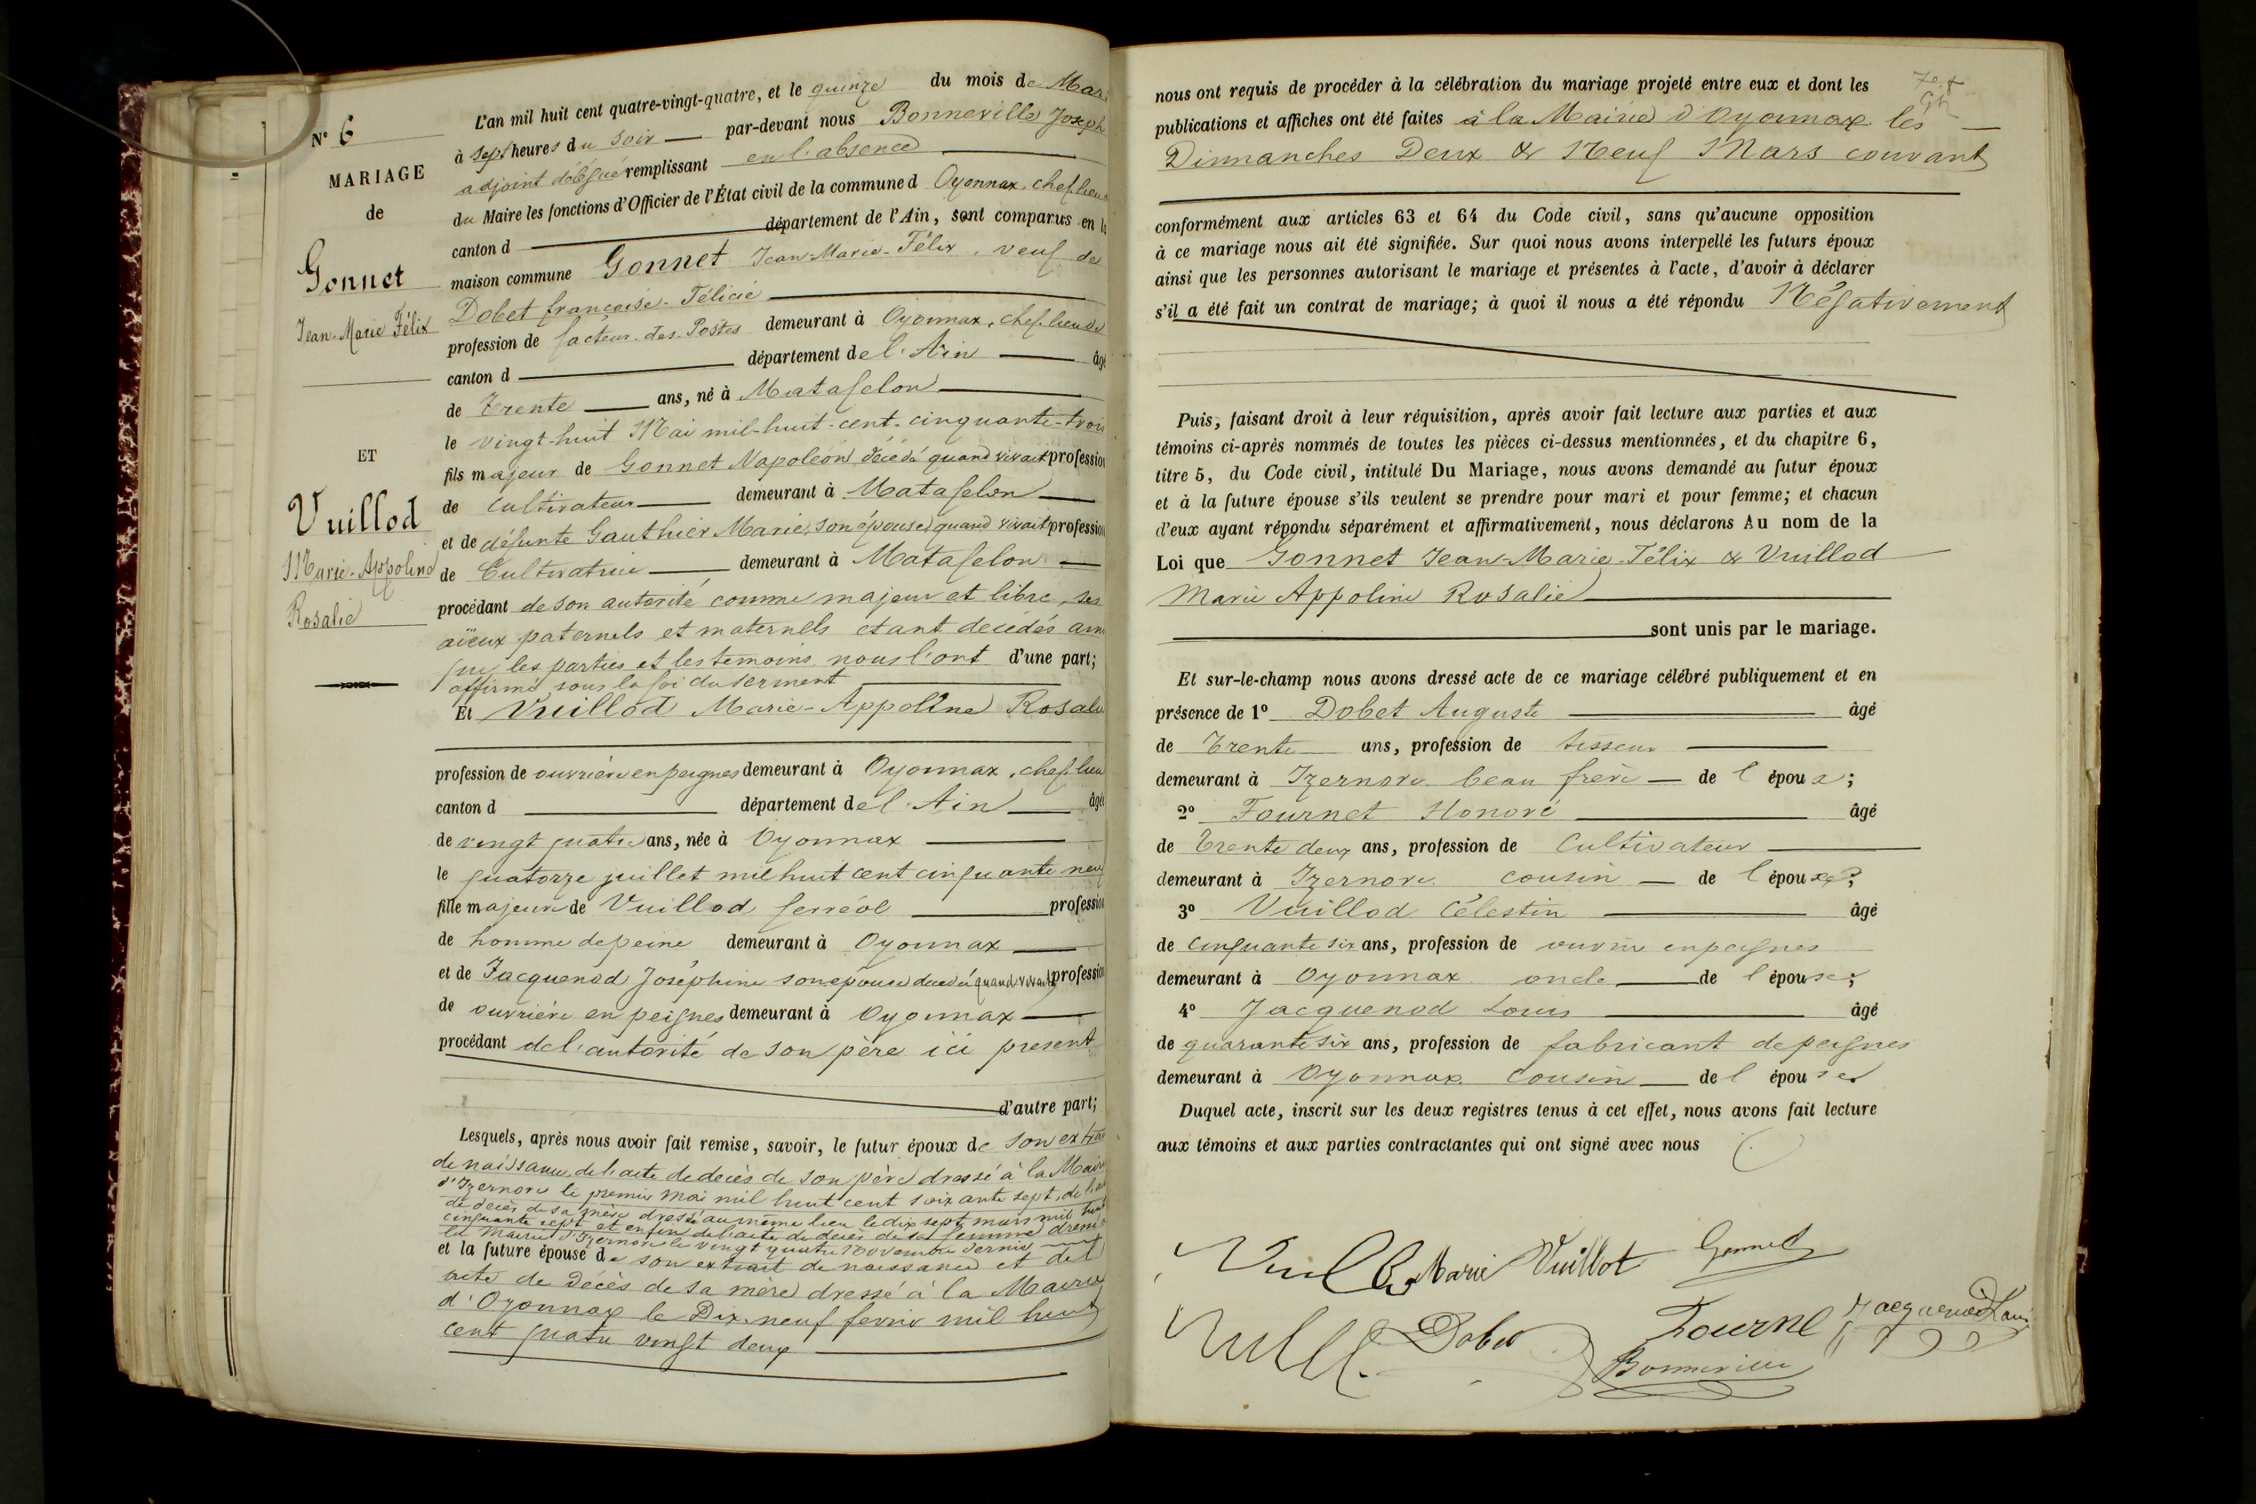 N° 6
MARIAGE
de
Gonnet
Jean-Marie Félix
ET
Vuillod
Marie-Appoline
Rosalie
L'an mil huit cent quatre-vingt-quatre, et le quinze du mois de Mars
à sept heures du soir par-devant nous Bonneville Joseph
adjoint délégué remplissant en l'absence
du Maire les fonctions d'Officier de l'État civil de la commune d Oyonnax, chef-lieu de
canton d département de l'Ain, sont comparus en la
maison commune Gonnet Jean-Marie-Félix, veuf de
Dobet françoise-Félicie
profession de facteur-des-Postes demeurant à Oyonnax, chef-lieu de
canton d département de l'Ain âgé
de Trente ans, né à Matafelon
le vingt-huit Mai mil-huit-cent-cinquante-trois
fils majeur de Gonnet Napoléon décédé quand vivait profession
de Cultivateur demeurant à Matafelon
et de défunte Gauthier Marie, son épouse, quand vivait profession
de Cultivatrice demeurant à Matafelon
procédant de son autorité comme majeur et libre, ses
aïeux paternels et maternels étant décédés ainsi
que les parties et les témoins nous l'ont d'une part;
affirmé sous la foi du serment
Et Vuillod Marie-Appoline Rosalie
profession de ouvrière en peignes demeurant à Oyonnax, chef-lieu
canton d département de l'Ain âgée
de vingt quatre ans, née à Oyonnax
le quatorze juillet mil huit cent cinquante neuf
fille majeure de Vuillod ferréol profession
de homme de peine demeurant à Oyonnax
et de Jacquenod Joséphine son épouse décédée quand vivait profession
de ouvrière en peignes demeurant à Oyonnax
procédant de l'autorité de son père ici présent
d'autre part;
Lesquels, après nous avoir fait remise, savoir, le futur époux de son extrait
de naissance, de l'acte de décès de son père dressé à la Mairie
d'Izernore le premier Mai mil huit cent soixante sept, de l'acte
de décès de sa mère dressé au même lieu le dix sept mars mil huit
cinquante sept et enfin de l'acte de décès de sa femme dressé
la Mairie d'Izernore le vingt quatre Novembre dernier
et la future épouse de son extrait de naissance et de l'
acte de décès de sa mère dressé à la Mairie
d'Oyonnax le Dix-neuf fevrier mil huit
cent quatre vingt deux
nous ont requis de procéder à la célébration du mariage projeté entre eux et dont les
publications et affiches ont été faites à la Mairie d'Oyonnax les
Dimanches Deux & Neuf Mars courant
conformément aux articles 63 et 64 du Code civil, sans qu'aucune opposition
à ce mariage nous ait été signifiée. Sur quoi nous avons interpellé les futurs époux
ainsi que les personnes autorisant le mariage et présentes à l'acte, d'avoir à déclarer
s'il a été fait un contrat de mariage; à quoi il nous a été répondu Négativement
Puis, faisant droit à leur réquisition, après avoir fait lecture aux parties et aux
témoins ci-après nommés de toutes les pièces ci-dessus mentionnées, et du chapitre 6,
titre 5, du Code civil, intitulé Du Mariage, nous avons demandé au futur époux
et à la future épouse s'ils veulent se prendre pour mari et pour femme; et chacun
d'eux ayant répondu séparément et affirmativement, nous déclarons Au nom de la
Loi que Gonnet Jean-Marie-Félix & Vuillod
Marie Appoline Rosalie
sont unis par le mariage.
Et sur-le-champ nous avons dressé acte de ce mariage célébré publiquement et en
présence de 1° Dobet Auguste âgé
de Trente ans, profession de tisseur
demeurant à Izernore beau frère de l époux;
2° Fournet Honoré âgé
de Trente deux ans, profession de Cultivateur
demeurant à Izernore cousin de l époux;
3° Vuillod Célestin âgé
de cinquante six ans, profession de ouvrier en peignes
demeurant à Oyonnax oncle de l épouse;
4° Jacquenod Louis âgé
de quarante six ans, profession de fabricant de peignes
demeurant à Oyonnax cousin de l épouse
Duquel acte, inscrit sur les deux registres tenus à cet effet, nous avons fait lecture
aux témoins et aux parties contractantes qui ont signé avec nous
Marie Vuillot Gonnet
Dobet Fournet Jacquenod Louis
Bonneville